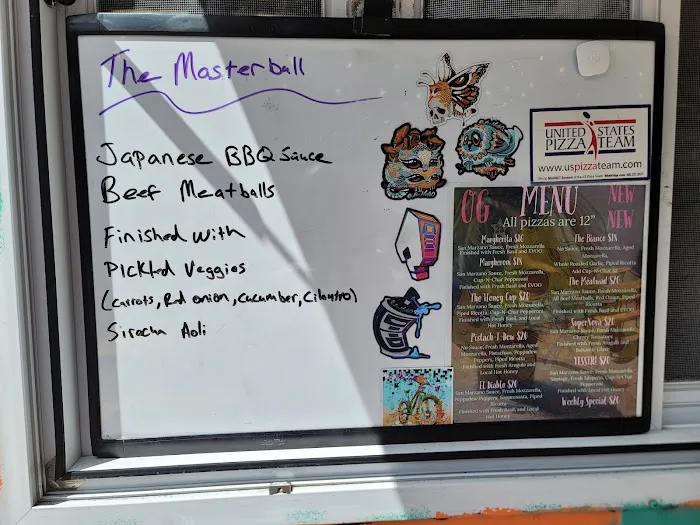 The Masterball
Japanese BBQ Sauce
Beef Meatballs
Finished with
Pickled Veggies
(Carrots, Red onion, Cucumber, Cilantro)
Siracha Aoli
UNITED STATES
PIZZA TEAM
www.uspizzateam.com
OG MENU NEW
NEW
All pizzas are 12"
Margherita $16
San Marzano Sauce, Fresh Mozzarella
Finished with Fresh Basil and EVOO
Margheroni $18
San Marzano Sauce, Fresh Mozzarella,
Cup-N-Char Pepperoni
Finished with Fresh Basil and EVOO
The Honey Cup $20
San Marzano Sauce, Fresh Mozzarella,
Piped Ricotta, Cup-N-Char Pepperoni,
Finished with Fresh Basil, and Local
Hot Honey
Pistach-I-Dew $20
No Sauce, Fresh Mozzarella, Aged
Mozzarella, Pistachios, Peppadew
Peppers, Piped Ricotta
Finished with Fresh Arugula and
Local Hot Honey
El Diablo $20
San Marzano Sauce, Fresh Mozzarella,
Peppadew Peppers, Soppressata, Piped
Ricotta
Finished with Fresh Basil, and Local
Hot Honey
The Bianco $18
No Sauce, Fresh Mozzarella, Aged
Mozzarella,
Whole Roasted Garlic, Piped Ricotta
Add Cup-N-Char
The Meatwad $20
San Marzano Sauce, Fresh Mozzarella,
All Beef Meatballs, Red Onion, Piped
Ricotta
Finished with Fresh Basil and EVOO
SuperNova $20
Cherry Tomatoes
Finished with Fresh Arugula and
Balsamic Glaze
YESSIRI $20
San Marzano Sauce, Fresh Mozzarella,
Sausage, Fresh Jalapeno, Cup-N-Char
Pepperoni
Finished with Local Hot Honey
Weekly Special $20